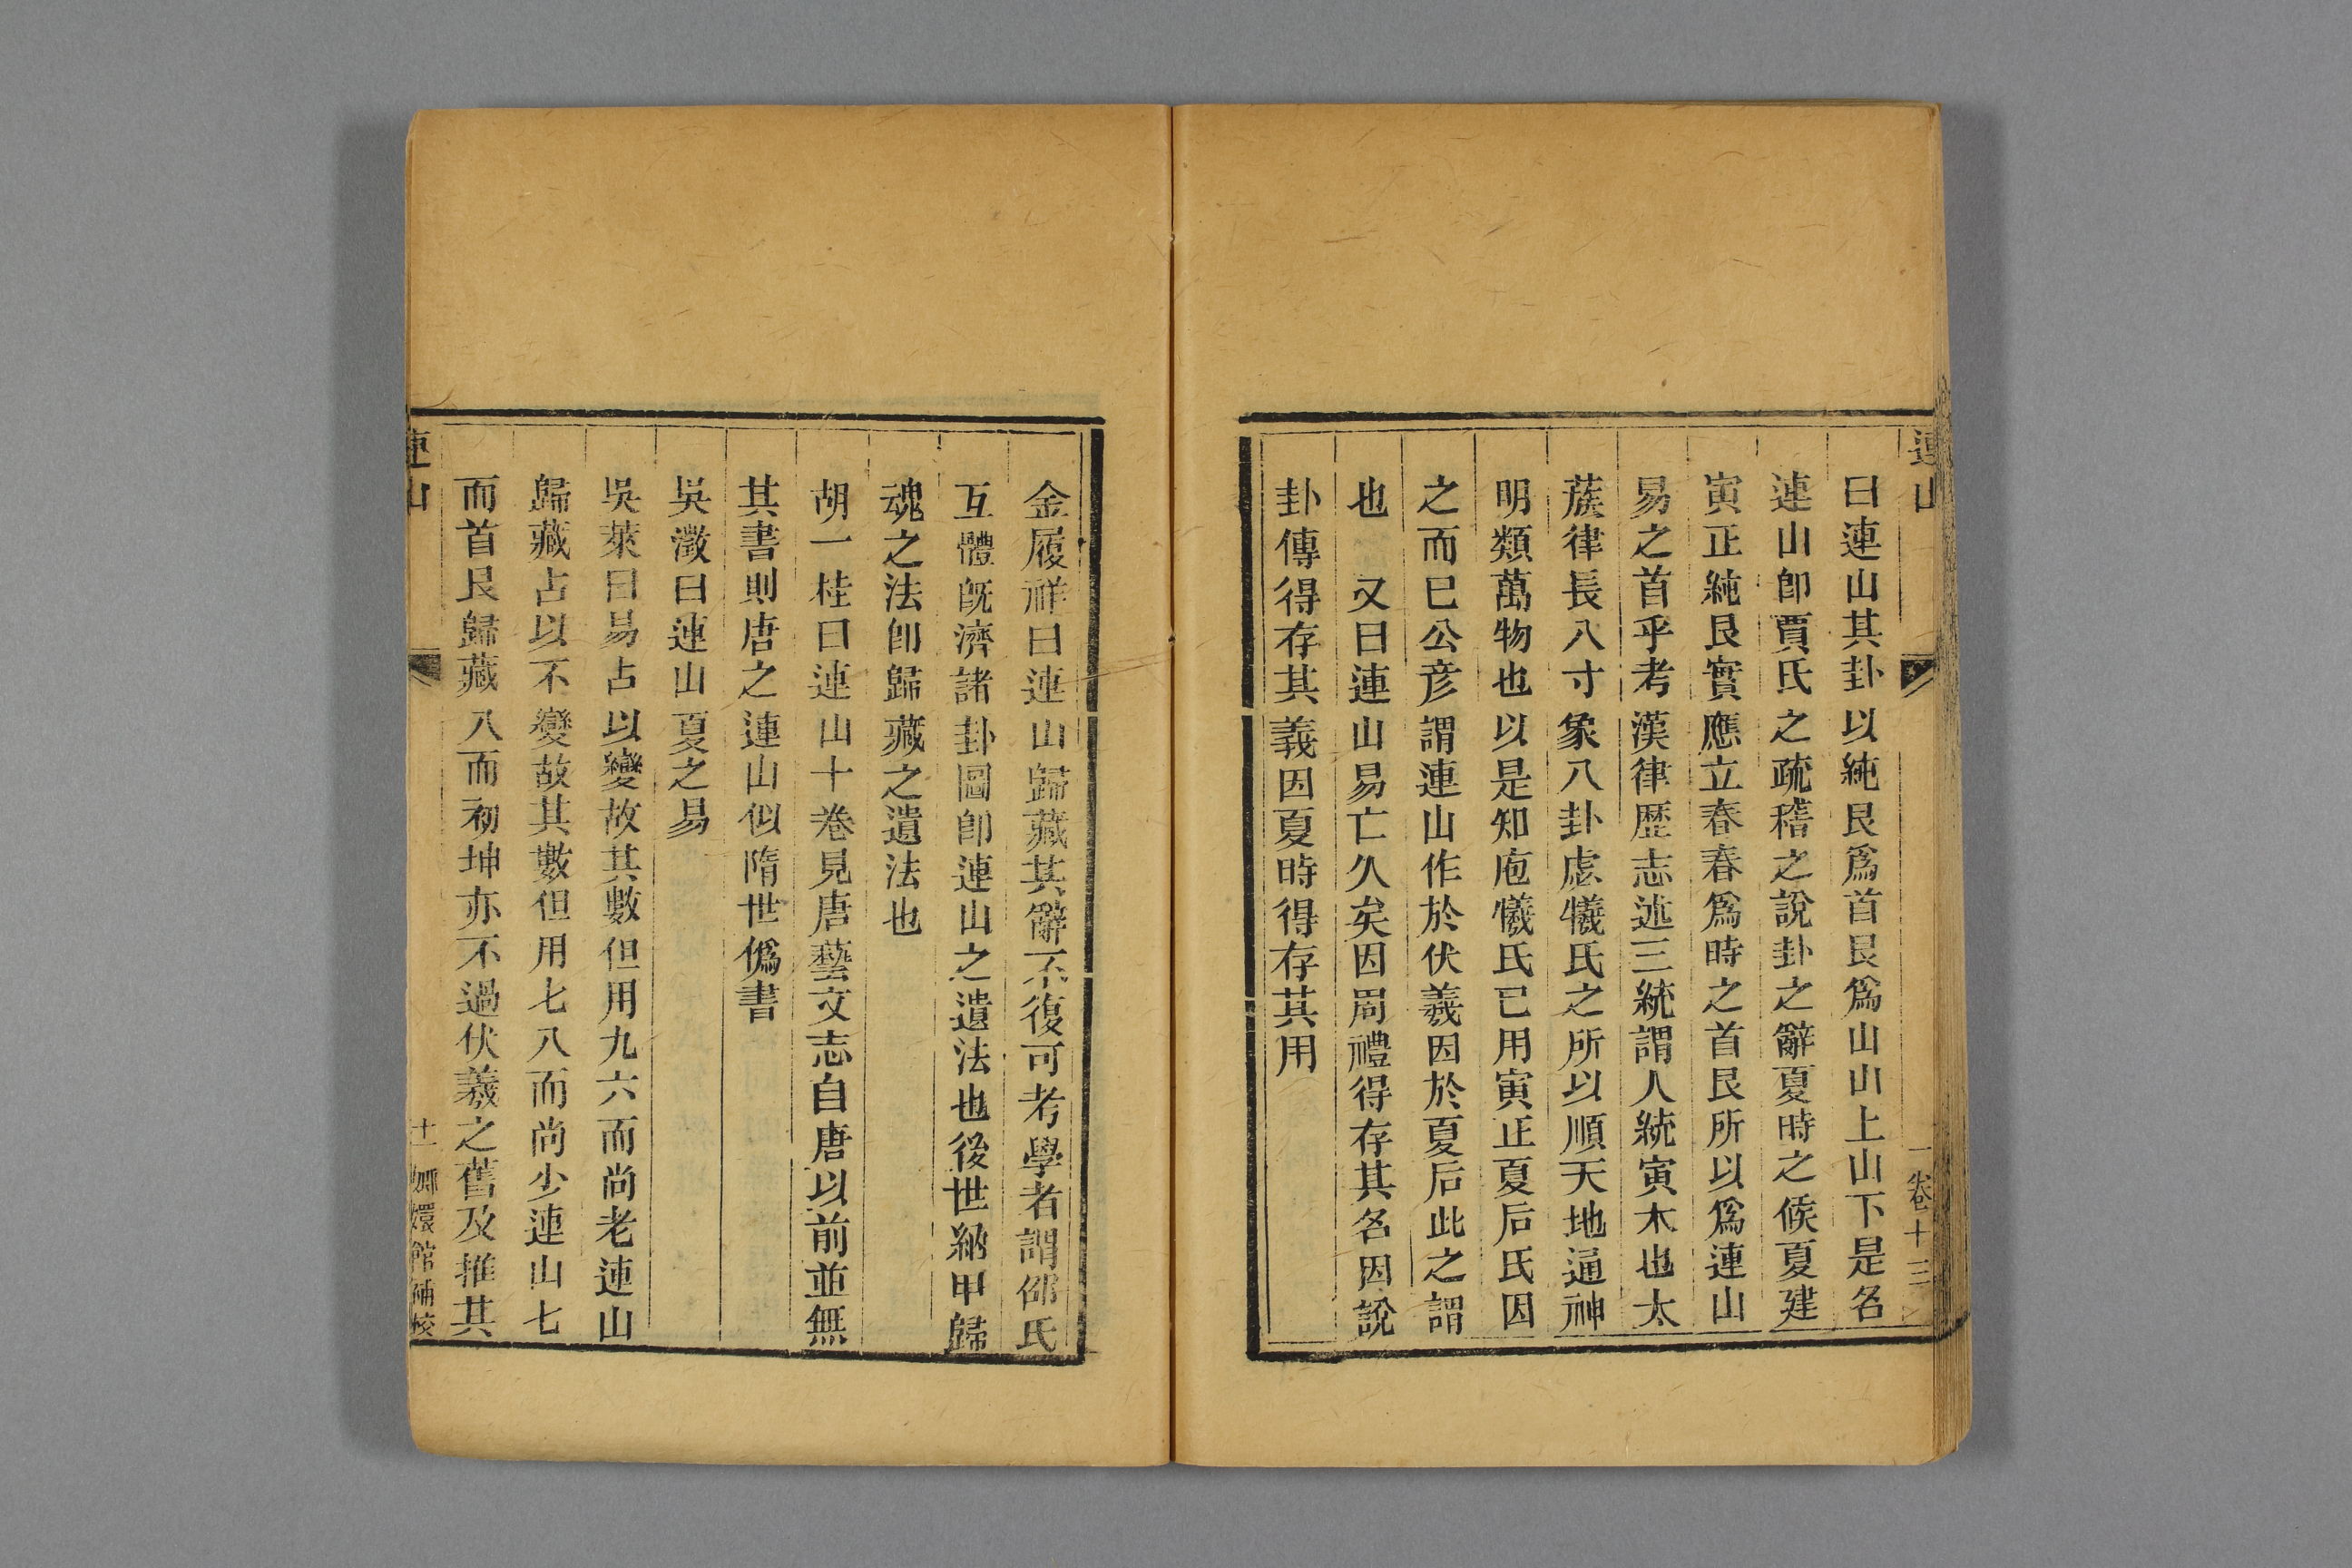 連山
一卷十三
曰連山其卦以純艮爲首艮爲山山上山下是名
連山卽賈氏之疏稽之說卦之辭夏時之候夏建
寅正純艮實應立春春爲時之首艮所以爲連山
易之首乎考漢律歷志述三統謂人統寅木也太
蔟律長八寸象八卦虙犧氏之所以順天地通神
明類萬物也以是知庖犧氏已用寅正夏后氏因
之而已公彦謂連山作於伏羲因於夏后此之謂
也 又曰連山易亡久矣因周禮得存其名因說
卦傳得存其義因夏時得存其用
金履祥曰連山歸藏其辭不復可考學者謂邵氏
互體旣濟諸卦圖卽連山之遺法也後世納甲歸
魂之法卽歸藏之遺法也
胡一桂曰連山十卷見唐藝文志自唐以前並無
其書則唐之連山似隋世僞書
吳澂曰連山夏之易
吳萊曰易占以變故其數但用九六而尚老連山
歸藏占以不變故其數但用七八而尚少連山七
而首艮歸藏八而初坤亦不過伏羲之舊及推其
連山
十一
嫏嬛館補校